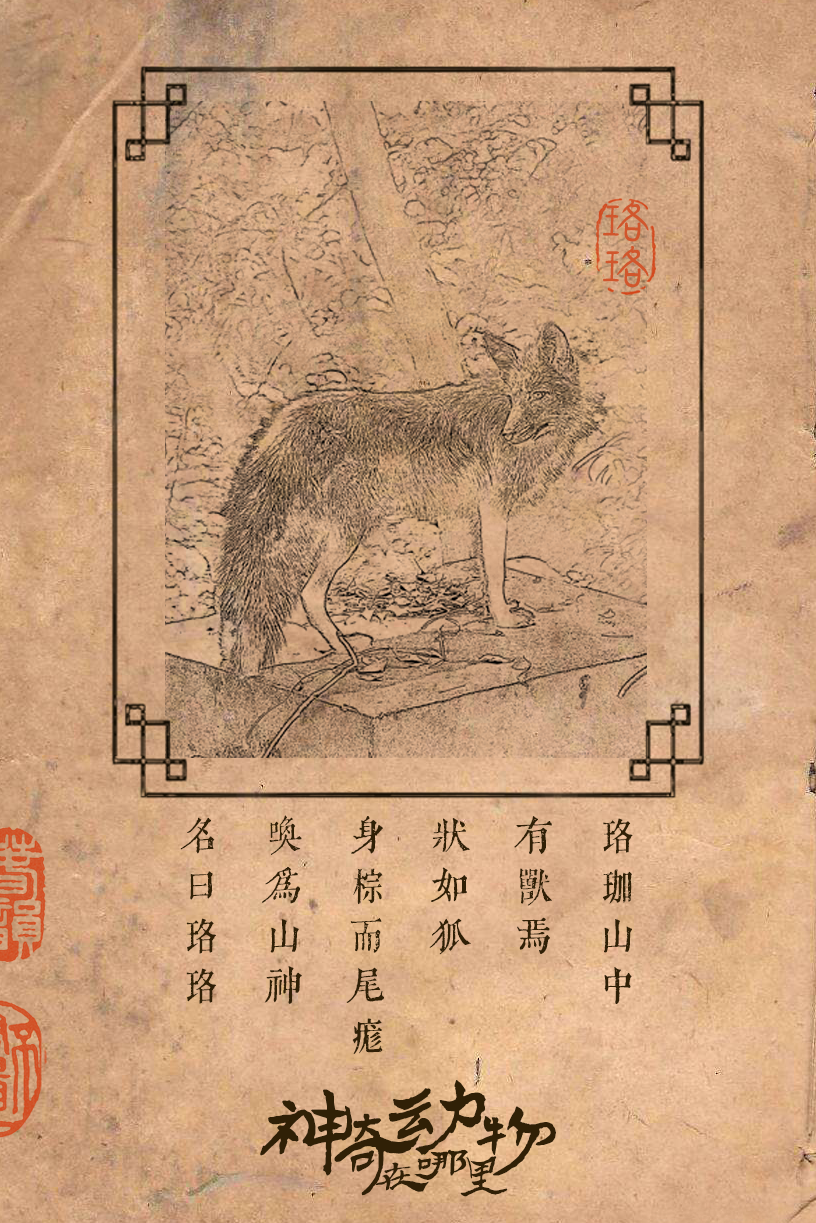 珞珞
珞珈山中
有獸焉
狀如狐
身棕而尾痝
喚為山神
名曰珞珞
神奇动物在哪里